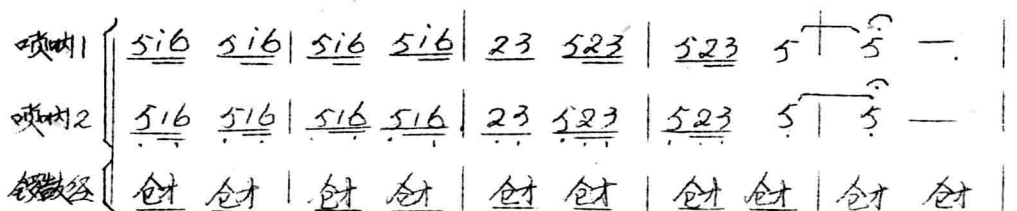 唢呐1 5i6 5i6 | 5i6 5i6 | 23 523 | 523 5 | 5 — |
唢呐2 516 516 | 516 516 | 23 523 | 523 5 | 5 — |
锣鼓经 仓才 仓才 | 仓才 仓才 | 仓才 仓才 | 仓才 仓才 | 仓才 仓才